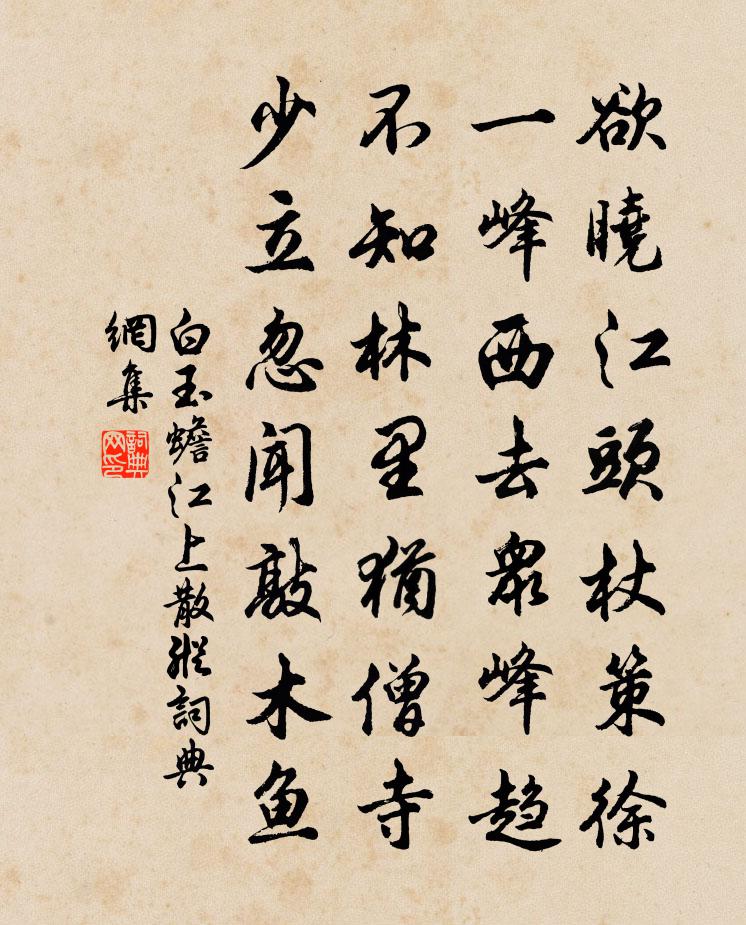 欲曉江頭杖策徐
一峰西去眾峰趨
不知林里猶僧寺
少立忽聞敲木鱼
白玉蟾江上散縱詞典
網集
詞典网印